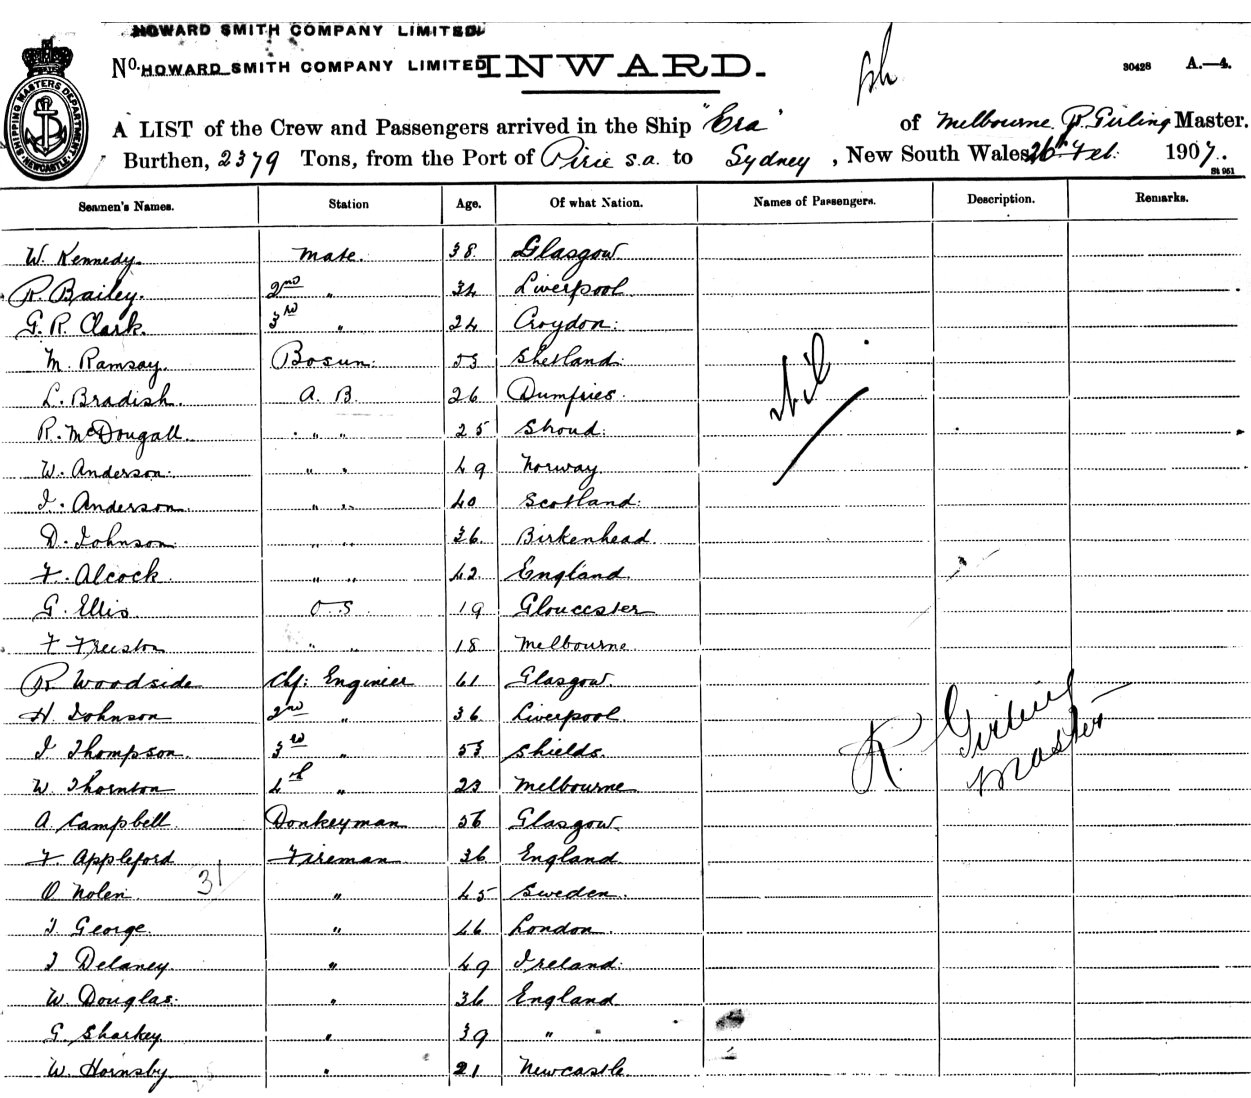 HOWARD SMITH COMPANY LIMITED
No. HOWARD SMITH COMPANY LIMITED INWARD. 30428 A.—4.
SHIPPING MASTERS DEPARTMENT NEWCASTLE
A LIST of the Crew and Passengers arrived in the Ship "Era" of Melbourne R. Girling Master.
Burthen, 2379 Tons, from the Port of Pirie S.a. to Sydney, New South Wales 26th Feb. 1907.
St 961
Seamen's Names. Station Age. Of what Nation. Names of Passengers. Description. Remarks.
W. Kennedy. Mate. 38 Glasgow
R. Bailey. 2nd " 34 Liverpool
G. R. Clark. 3rd " 24 Croydon.
M. Ramsay. Bosun. 53 Shetland.
Nil
L. Bradish. A. B. 26 Dumfries.
R. McDougall. " " 25 Shoud.
W. Anderson. " " 49 Norway
J. Anderson. " " 40 Scotland.
D. Johnson. " " 36 Birkenhead.
F. Alcock. " " 42 England.
G. Ellis. O.S. 19 Gloucester
F Freeston " " 18 Melbourne.
R Woodside Chf: Engineer 61 Glasgow.
H. Johnson 2nd " 36 Liverpool
J. Thompson. 3rd " 53 Shields.
R. Girling
Master
W Thornton 4th " 23 Melbourne
A. Campbell Donkeyman 56 Glasgow.
F. Appleford Fireman 36 England
31
O Nolen " 45 Sweden.
J. George " 46 London.
J Delaney " 49 Ireland.
W. Douglas. " 36 England
G. Sharkey " 39 "
W. Hornsby " 21 Newcastle.